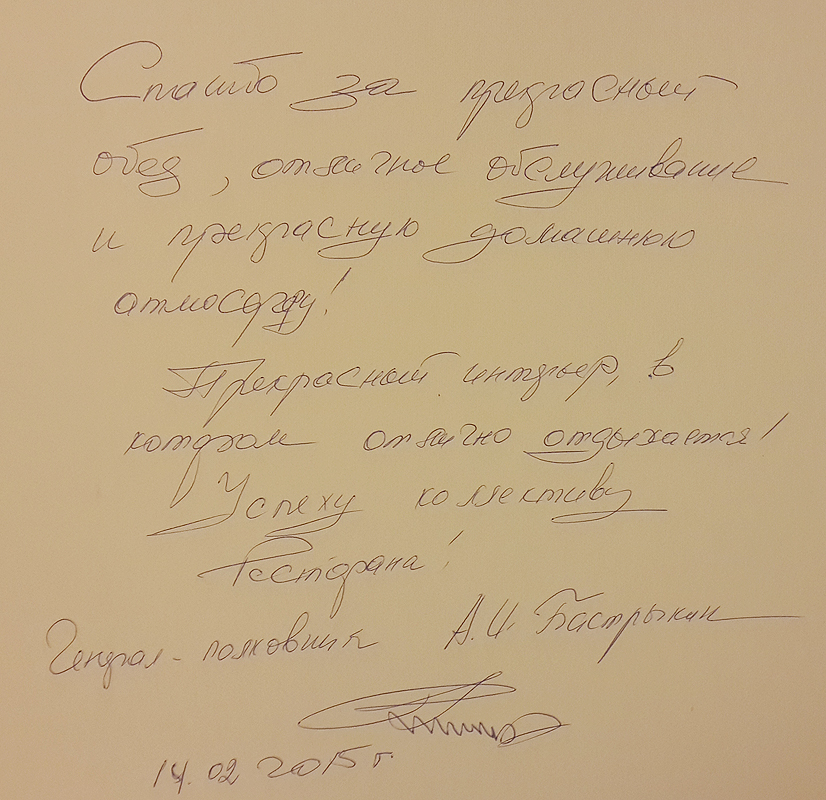 Спасибо за прекрасный
обед, отличное обслуживание
и прекрасную домашнюю
атмосферу!
Прекрасный интерьер, в
котором отлично отдыхается!
Успеху коллективу
Ресторана!
Генерал-полковник А.И. Бастрыкин
14.02 2015 г.